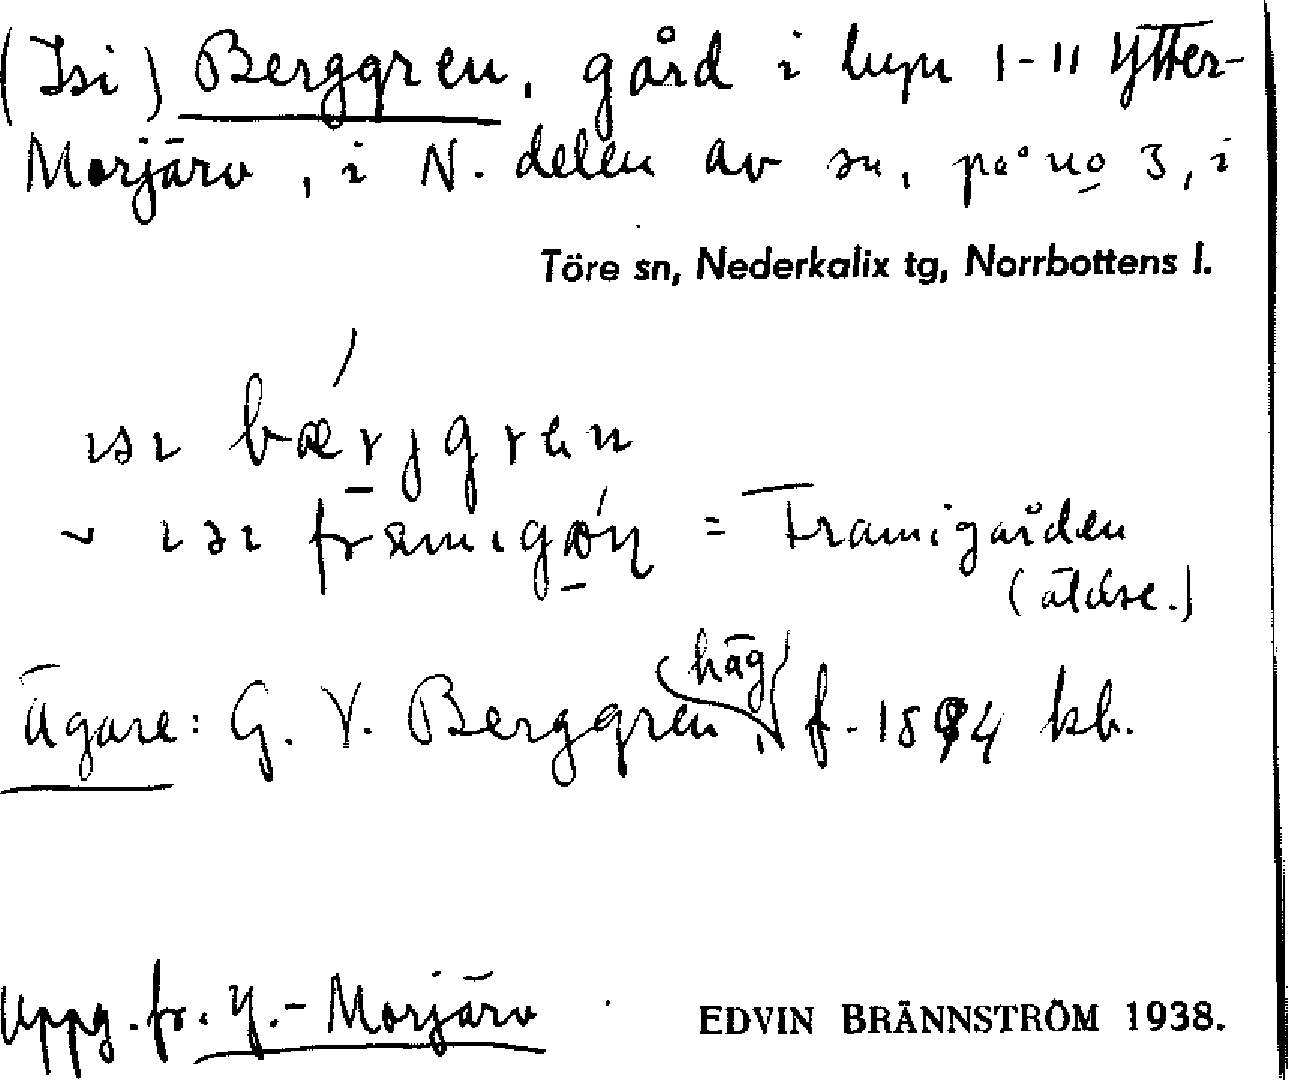 (Isi) Berggren, gård i byn 1-11 Ytter-
Morjärv, i N. delen av sn, på no 3, i
Töre sn, Nederkalix tg, Norrbottens l.
ısı bærjgren
~ ısı framıgo̱ɳ = Framigården
(äldre.)
häg
Ägare: G. V. Berggren, f. 1894 kb.
Uppg. fr. Y.-Morjärv
EDVIN BRÄNNSTRÖM 1938.